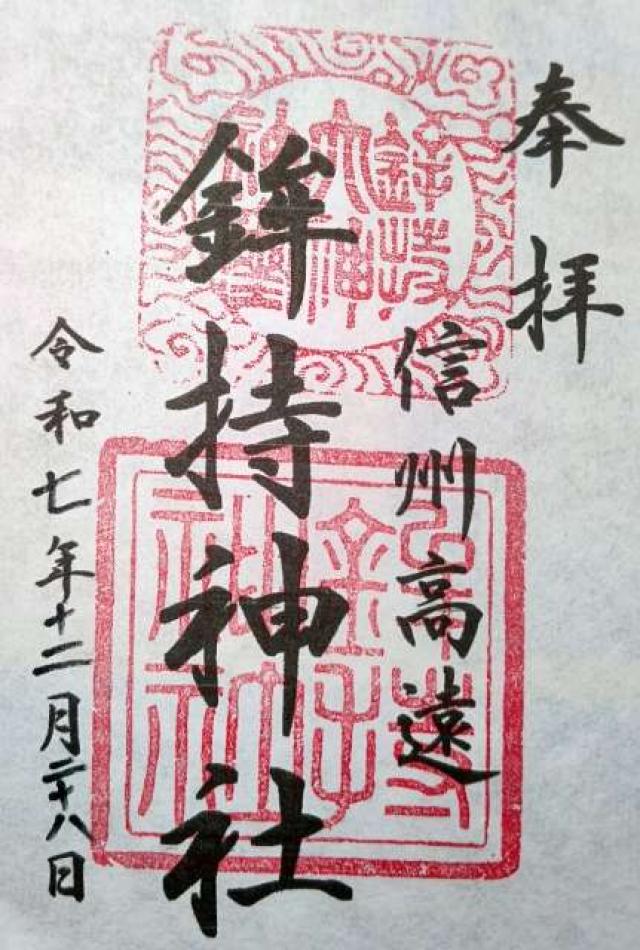 奉拝
信州高遠
鉾持神社
令和七年十二月二十八日